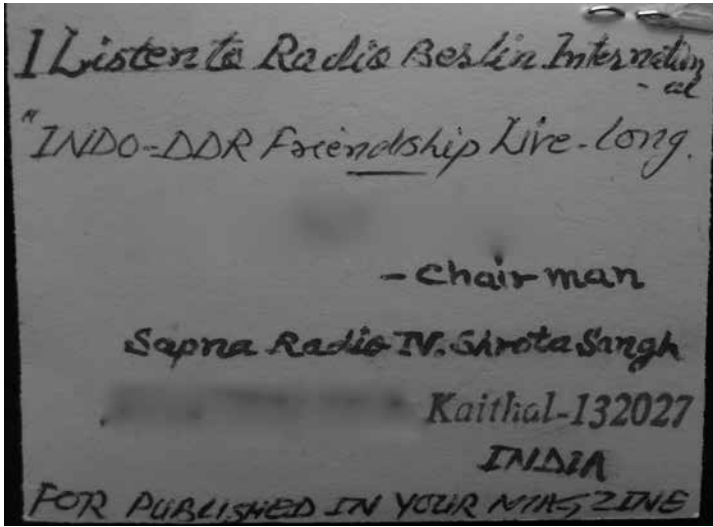 I Listen to Radio Berlin Internation
- al
"INDO-DDR Friendship Live-long.
- Chairman
Sapna Radio TV. Shrota Sangh
Kaithal-132027
INDIA
FOR PUBLISHED IN YOUR MAGZINE